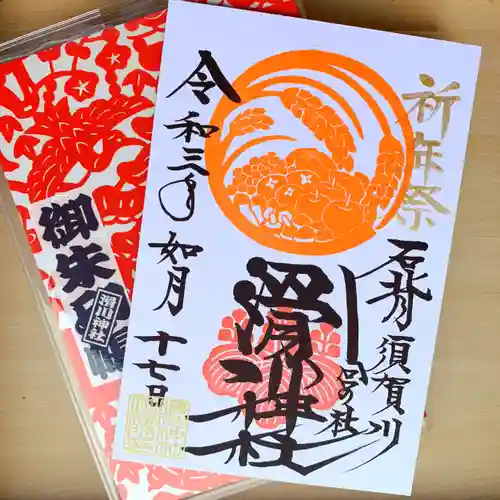 祈年祭
石背
須賀川
滑川神社
令和三年
如月
十七日
御朱印帳
滑川神社